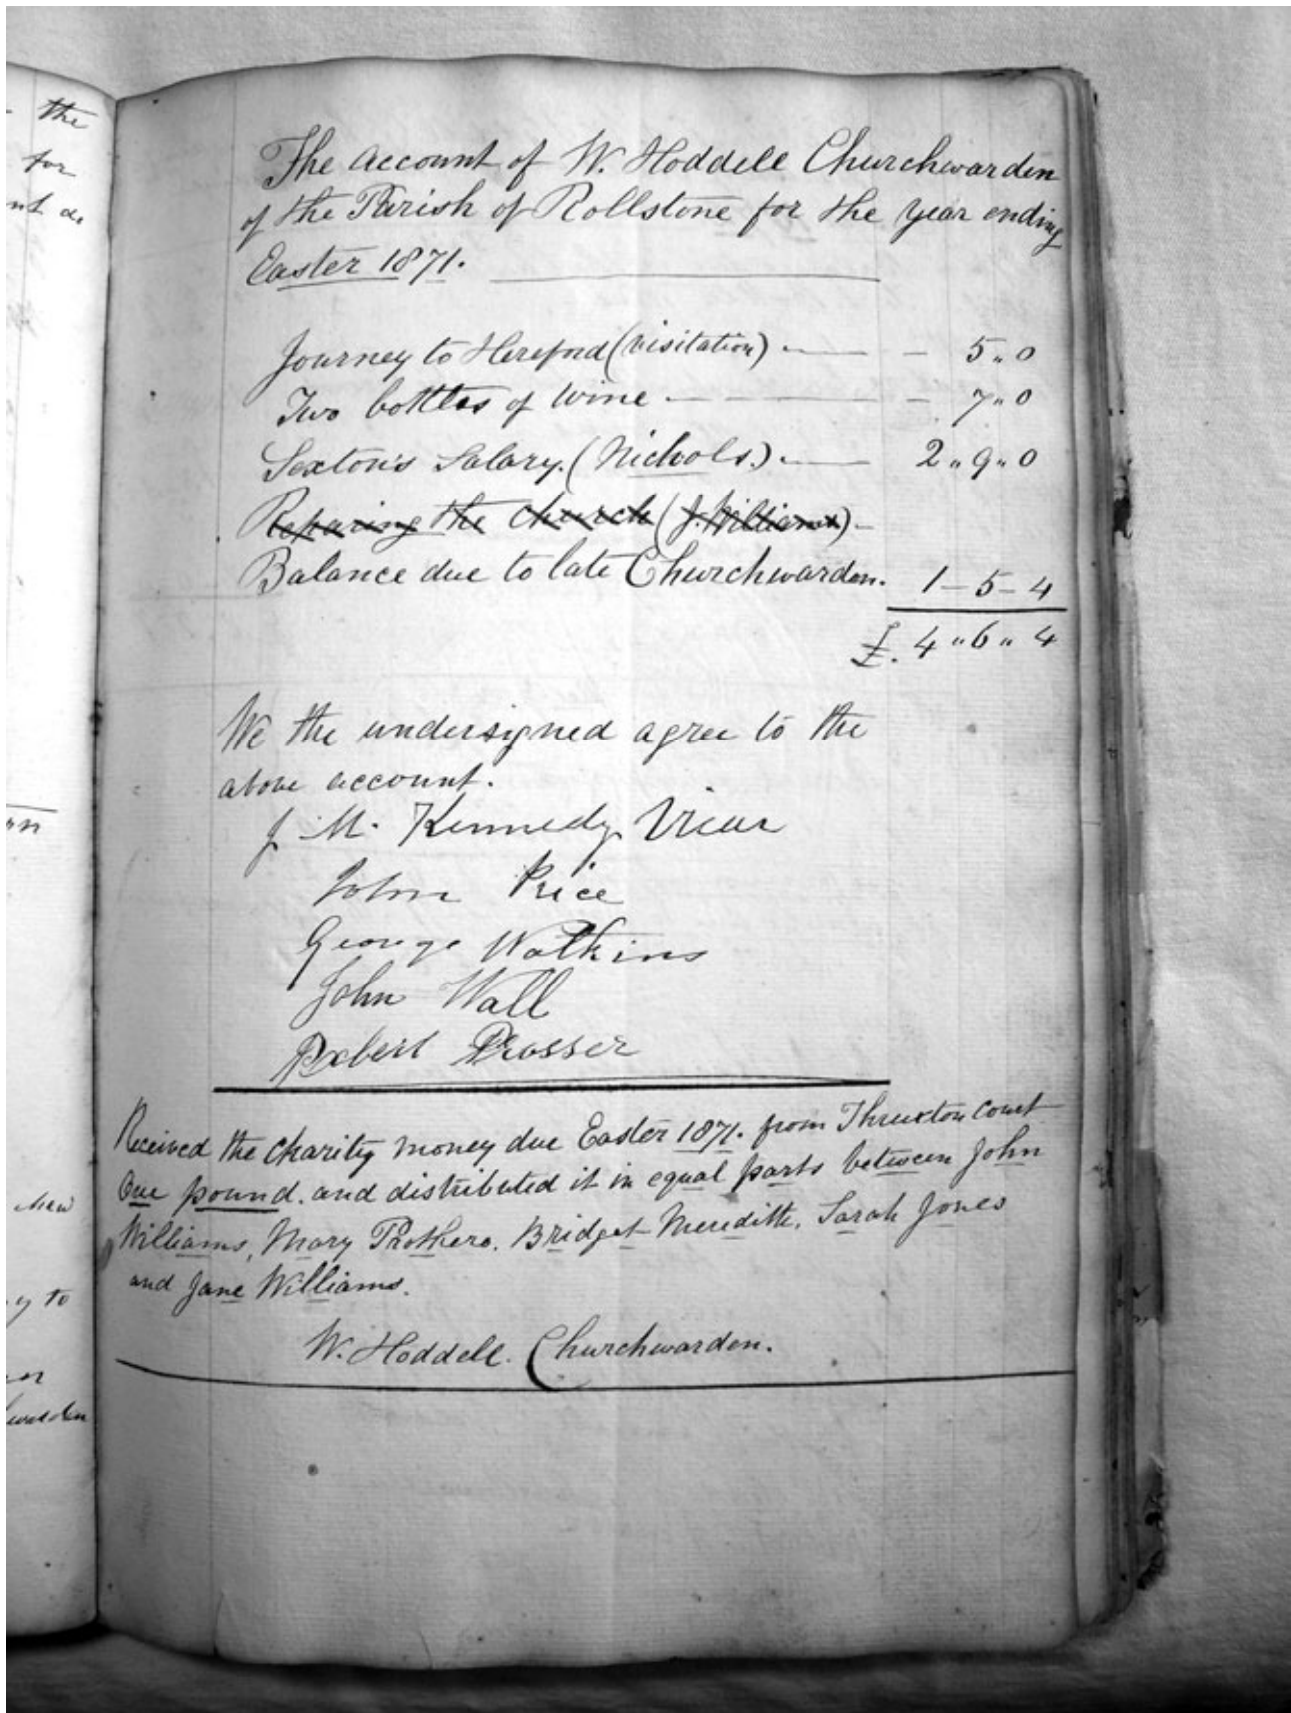 the
for
The Account of W. Hoddell Churchwarden
of the Parish of Rollstone for the year ending
Easter 1871.
Journey to Hereford (visitation) - 5 " 0
Two bottles of wine - 7 " 0
Sexton's Salary. (Nichols.) - 2 " 9 " 0
Reparing the Church (J. Williams) -
Balance due to late Churchwarden. 1 - 5 - 4
£. 4 " 6 " 4
We the undersigned agree to the
above account.
J M. Kennedy Vicar
John Price
George Watkins
John Wall
Robert Prosser
Received the charity money due Easter 1871. from Thruxton Court
One pound. and distributed it in equal parts between John
Williams, Mary Prothero. Bridget Meredith, Sarah Jones
and Jane Williams.
W. Hoddell. Churchwarden.